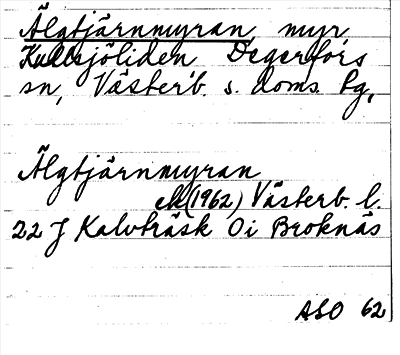 Älgtjärnmyran, myr
Kullsjöliden Degerfors
sn, Västerb. s. doms. bg,
Älgtjärnmyran
ek (1962) Västerb. l.
22 J Kalvträsk Oi Broknäs
ASO 62